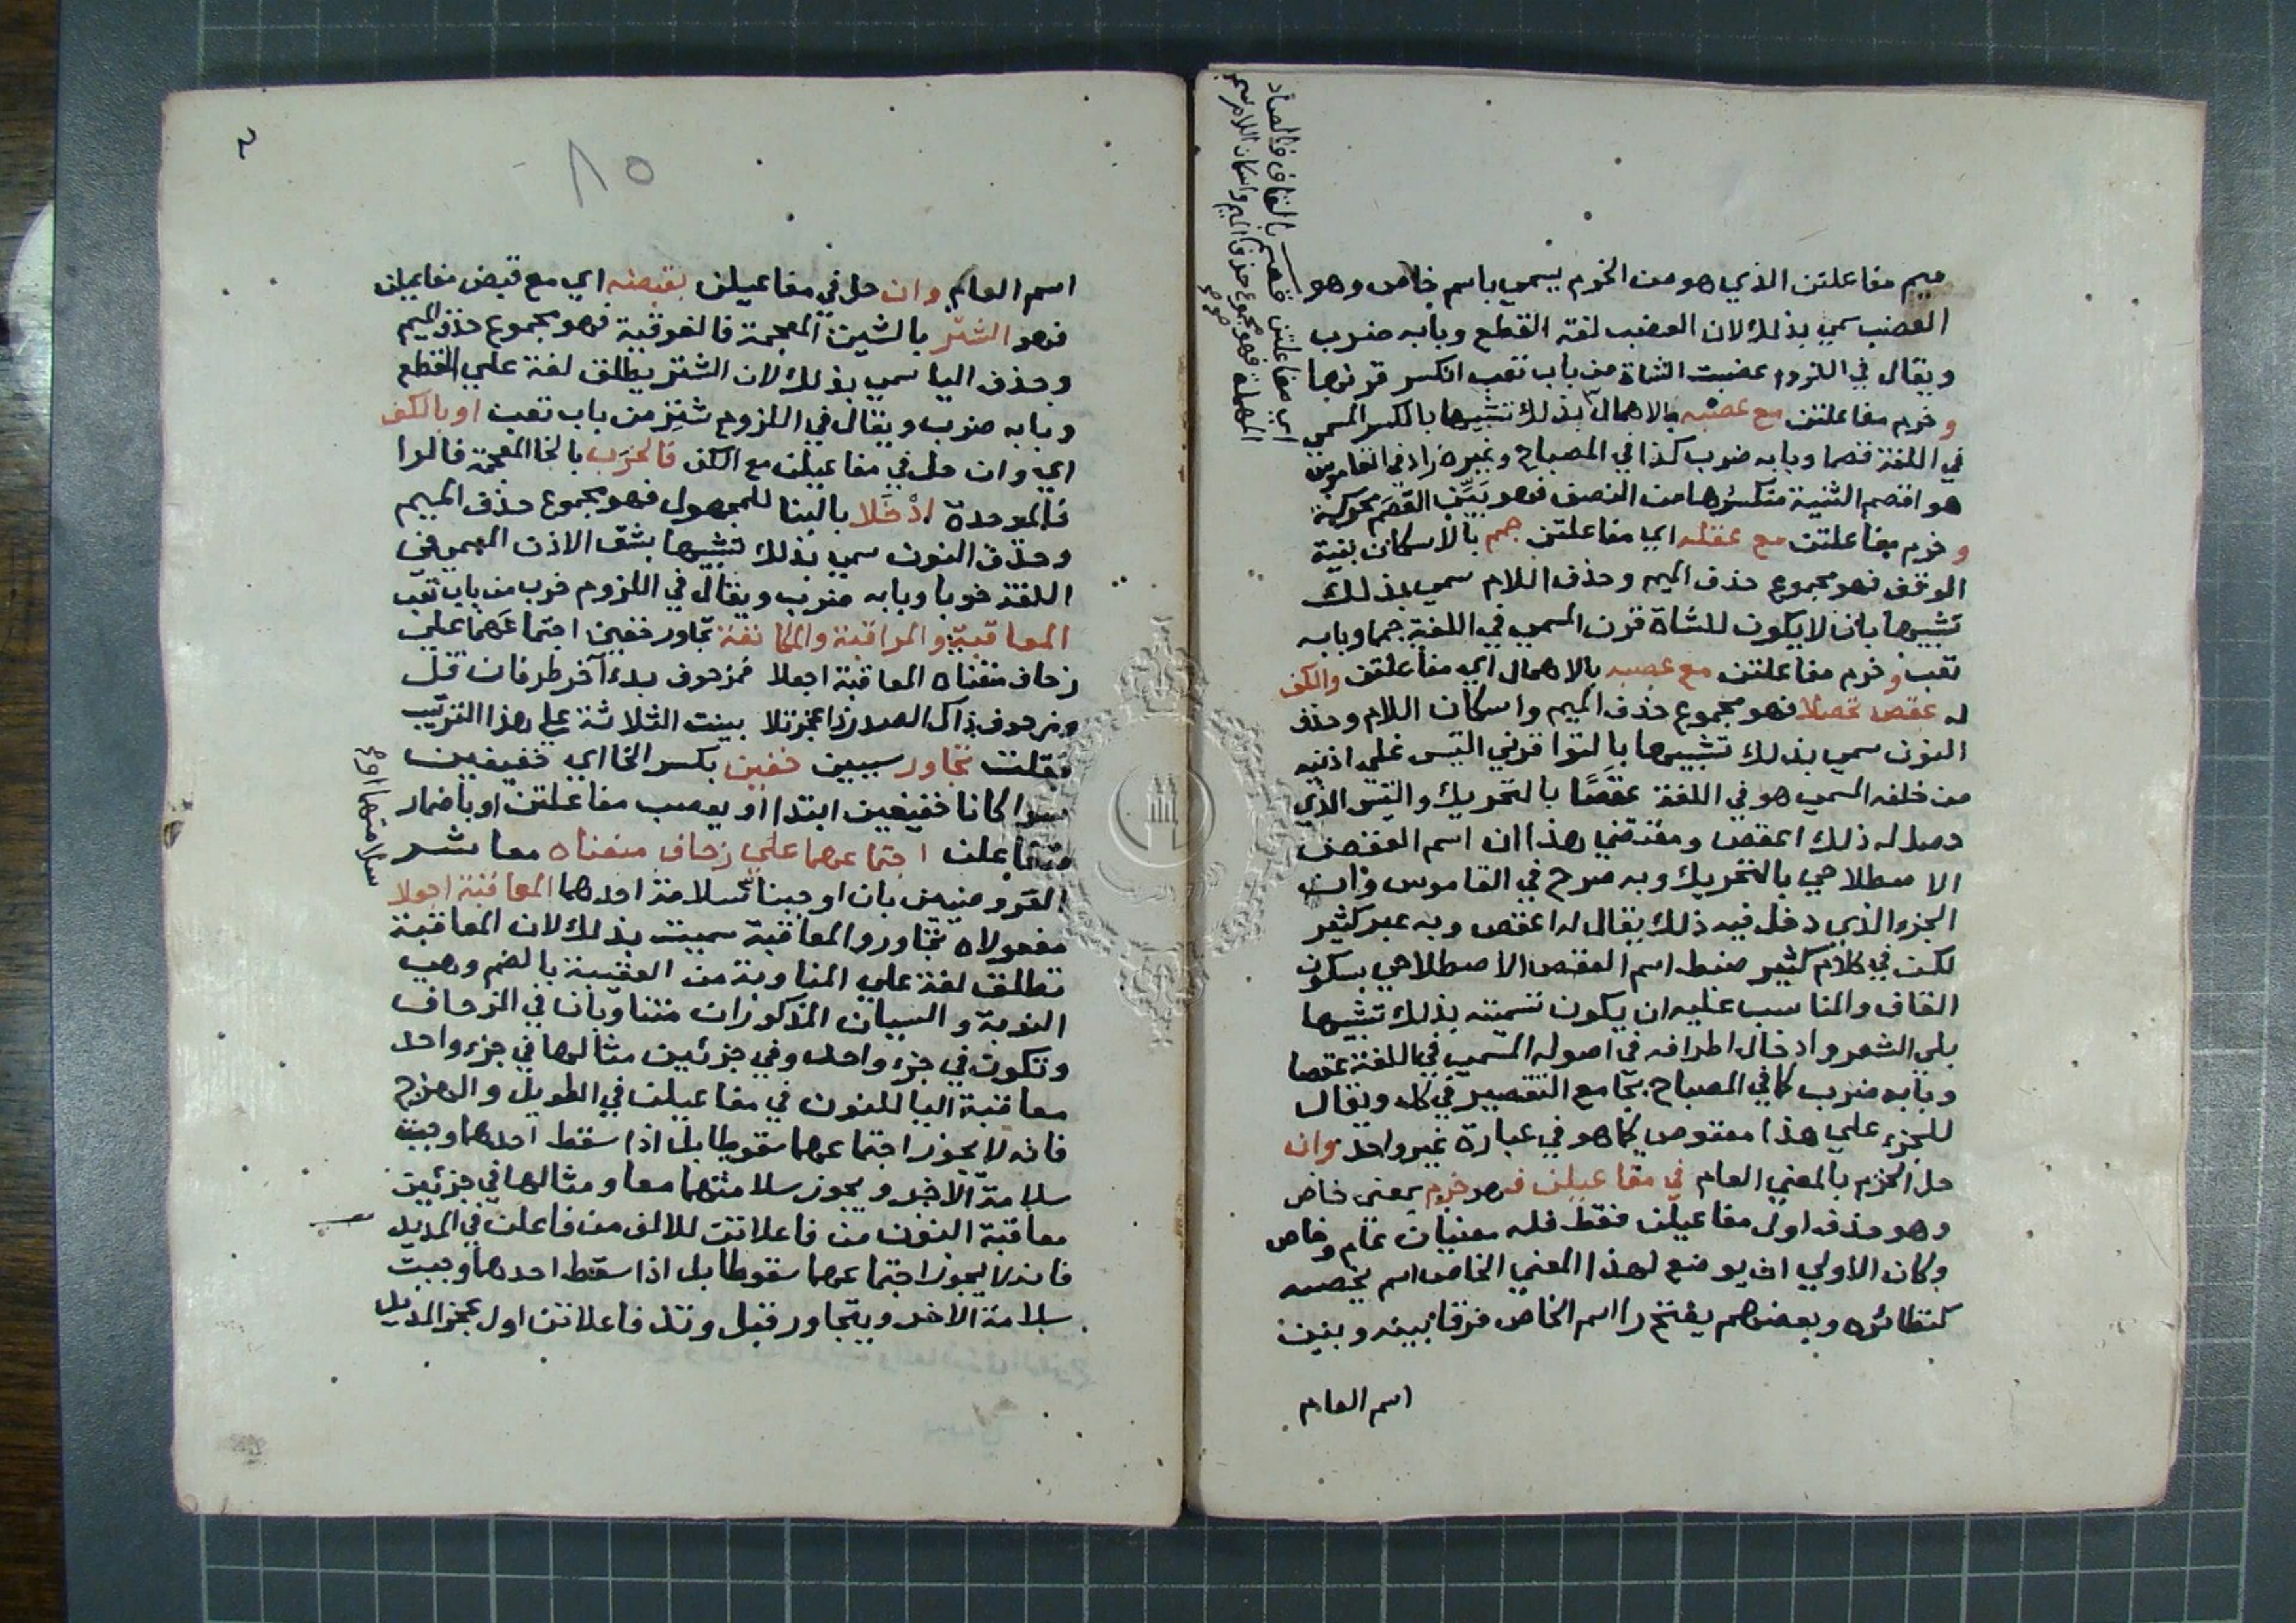 ميم مفاعلتن الذي هو من الخرم يسمي باسم خاص وهو
العضب سمي بذلك لان العضب لغة القطع وبابه ضرب
ويقال في اللزوم عضبت الشاة من باب تعب انكسر قرنها
و خرم مفاعلتن مع عصبه بالاهمال بذلك تشبيها بالكسر المسمي
في اللغة قصما وبابه ضرب كذا في المصباح وغيره زاد في القاموس
هو اقصم الثنية منكسرها من النصف فهو بَيِّن القَصَم محركة
و خرم مفاعلتن مع عقله اي مفاعلتن جمم بالاسكان بنية
الوقف فهو مجموع حذف الميم وحذف اللام سمي بذلك
تشبيها بان لا يكون للشاة قرن المسمي في اللغة جمما وبابه
تعب و خرم مفاعلتن مع عصبه بالاهمال اي مفاعلتن والكف
له عقص تحصلا فهو مجموع حذف الميم واسكان اللام وحذف
النون سمي بذلك تشبيها بالتوا قرني التيس علي اذنيه
من خلفه المسمي هو في اللغة عقَصًا بالتحريك والتيس الذي
حصل له ذلك اعقص ومقتضي هذا ان اسم العقص
الاصطلاحي بالتحريك وبه صرح في القاموس وان
الجزء الذي دخل فيه ذلك يقال له اعقص وبه عبر كثير
لكن في كلام كثير ضبط اسم العقص الاصطلاحي بسكون
القاف والمناسب عليه ان يكون تسميته بذلك تشبيها
بلي الشعر وادخال اطرافه في اصوله المسمي في اللغة عقصا
وبابه ضرب كما في المصباح بجامع التقصير في كل ويقال
للجزء علي هذا معقوص كما هو في عبارة غير واحد وان
حل الخرم بالمعني العام في مفاعيلن فهو خرم بمعني خاص
وهو حذف اول مفاعيلن فقط فله معنيان عام وخاص
وكان الاولي ان يوضع لهذا المعني الخاص اسم يخصه
كنظائره وبعضهم يفتح را اسم الخاص فرقا بينه وبين
اسم العام
اي مفاعلتن قصم بالقاف والصاد
المهملة فهو مجموع حذف الميم واسكان اللام سمي
صح صح
85
2
اسم العام وان حل في مفاعيلن بقبضه اي مع قبض مفاعيلن
فهو الشتر بالشين المعجمة فالفوقية فهو مجموع حذف الميم
وحذف اليا سمي بذلك لان الشتر يطلق لغة علي القطع
وبابه ضرب ويقال في اللزوم شتر من باب تعب او بالكف
اي وان حل في مفاعيلن مع الكف فالخرب بالخا المعجمة فالرا
فالموحدة ادْخَلا بالبنا للمجهول فهو مجموع حذف الميم
وحذف النون سمي بذلك تشبيها بشق الاذن المسمي في
اللغة خربا وبابه ضرب ويقال في اللزوم خرب من باب تعب
المعاقبة والمراقبة والمكانفة تجاور خفين اجتماعهما علي
زحاف منعناه المعاقبة اجعلا فمزحوف بدء آخر طرفان قل
ومزحوف ذاك الصدر ذا عجز تلا بينت الثلاثة علي هذا الترتيب
فقلت تجاور سببين خفين بكسر الخا اي خفيفين
سوا كانا خفيفين ابتدا او بعصب مفاعلتن او باضمار
متفاعلن اجتماعهما علي زحاف منعناه معاشر
العروضيين بان اوجبنا سلامة احدهما المعاقبة اجعلا
مفعولاه تجاور والمعاقبة سميت بذلك لان المعاقبة
تطلق لغة علي المناوبة من العقبة بالضم وهي
النوبة والسببان المذكوران متناوبان في الزحاف
وتكون في جزء واحد وفي جزئين مثالها في جزء واحد
معاقبة اليا للنون في مفاعيلن في الطويل والهزج
فانه لا يجوز اجتماعهما سقوطا بل اذا سقط احدهما وجبت
سلامة الاخر ويجوز سلامتهما معا ومثالها في جزئين
معاقبة النون من فاعلاتن للالف من فاعلن في المديد
فانه لا يجوز اجتماعهما سقوطا بل اذا سقط احدهما وجبت
سلامة الاخر ويتجاور قبل وتد فاعلاتن اول عجز المديد
سلامتهما او صح